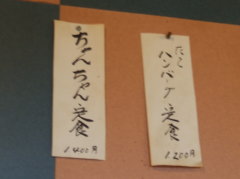 ちゃんちゃん定食
1400円
たこ
ハンバーグ定食
1200円